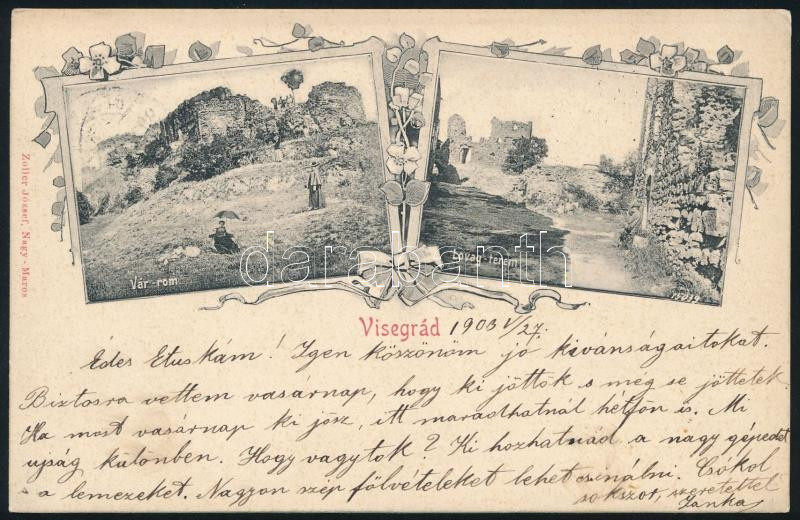 Vár-rom
Lovag-terem
Zoller József, Nagy-Maros
darabanth
Visegrád 1903 V/27.
Édes Etuskám! Igen köszönöm jó kivánságaitokat.
Biztosra vettem vasárnap, hogy ki jöttök s meg se jöttetek.
Ha most vasárnap ki jösz, itt maradhatnál hétfőn is. Mi
ujság különben. Hogy vagytok? Ki hozhatnád a nagy gépedet
s a lemezeket. Nagyon szép fölvételeket lehet csinálni. Csókol
sokszor, szeretettel
Janka